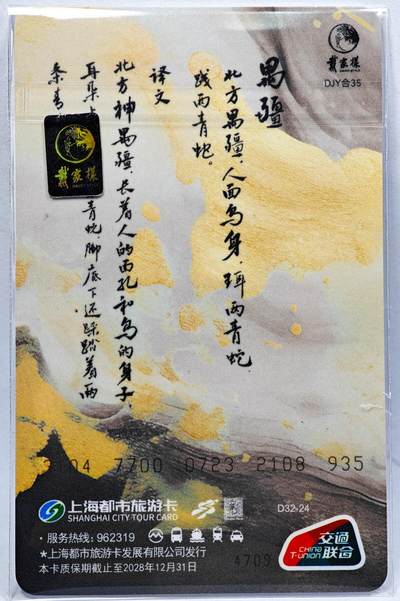 戴家樣
DJY合35
禺疆
北方禺疆，人面鸟身，珥两青蛇，
践两青蛇。
译文
北方神禺疆，长着人的面孔和鸟的身子，
耳朵 青蛇，脚底下还踩踏着两
条青
戴家樣
7700 0723 2108 935
上海都市旅游卡
SHANGHAI CITY TOUR CARD
D32-24
·服务热线: 962319
★上海都市旅游卡发展有限公司发行
本卡质保期截止至2028年12月31日
4709
交通
CHINA T-UNION
联合